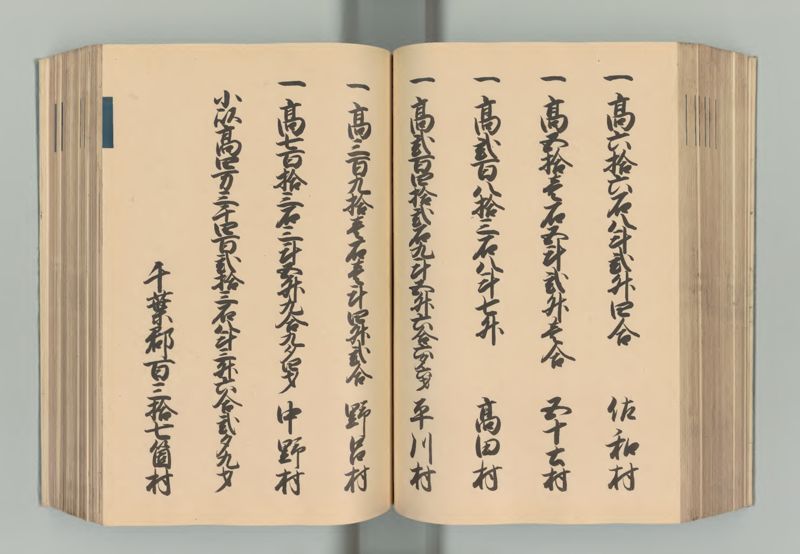 一 高六拾六石八斗弐升四合 佐和村
一 高五拾壱石五斗弐升壱合 五十土村
一 高弐百八拾三石八斗七升 高田村
一 高弐百四拾弐石九斗五升六合六夕六才 平川村
一 高三百九拾壱石壱斗四升弐合 野呂村
一 高七百拾三石三斗五升九合九夕四才 中野村
小以高四万三千四百弐拾三石八斗三升六合弐夕九才
千葉郡百三拾七箇村